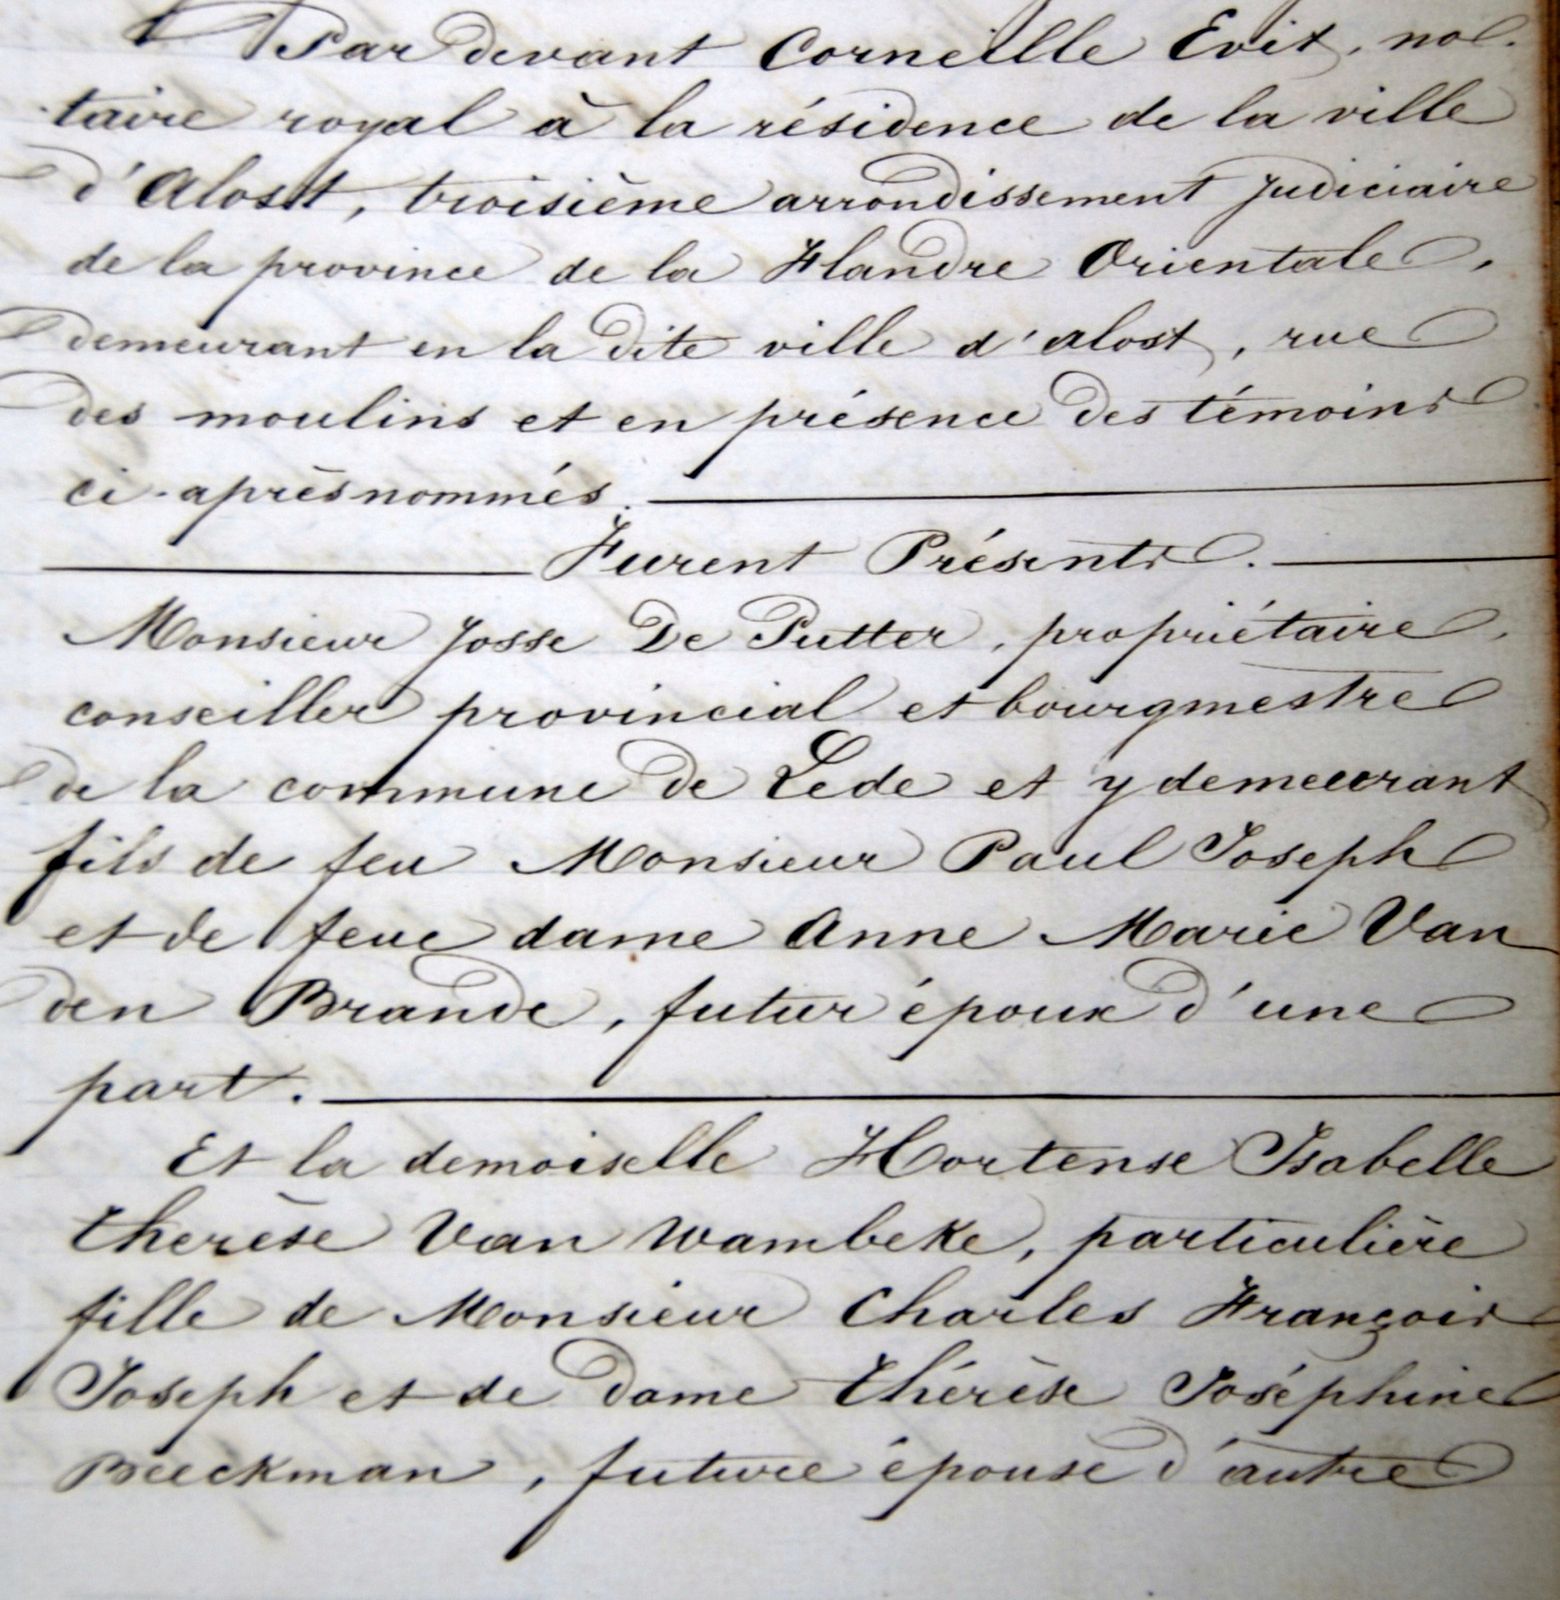 Par devant Corneille Evit, no-
taire royal à la résidence de la ville
d'Alost, troisième arrondissement judiciaire
de la province de la Flandre Orientale,
demeurant en la dite ville d'alost, rue
des moulins et en présence des témoins
ci-après nommés.
Furent Présents.
Monsieur Josse De Putter, propriétaire,
conseiller provincial et bourgmestre
de la commune de Lede et y demeurant
fils de feu Monsieur Paul Joseph
et de feue dame Anne Marie Van
den Brande, futur époux d'une
part.
Et la demoiselle Hortense Isabelle
Therèse Van Wambeke, particulière
fille de Monsieur Charles François
Joseph et de Dame Thérèse Joséphine
Breeckman, future épouse d'autre